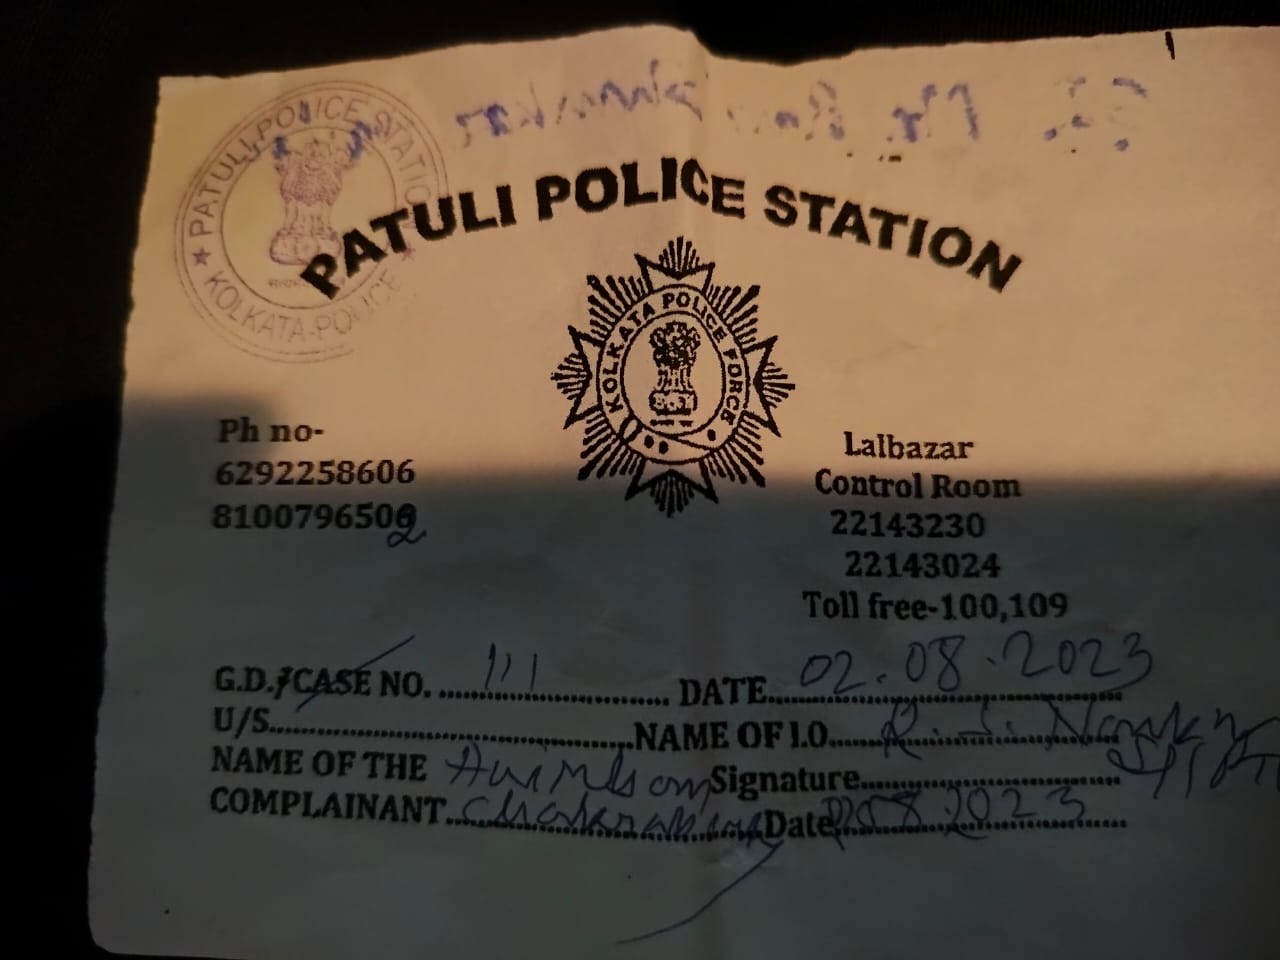 PATULI POLICE STATION
KOLKATA-POLICE
PATULI POLICE STATION
KOLKATA POLICE FORCE
Ph no-
6292258606
8100796502
Lalbazar
Control Room
22143230
22143024
Toll free-100,109
G.D./CASE NO. 111 DATE 02.08.2023
U/S NAME OF I.O
NAME OF THE Signature
COMPLAINANT Date 08.2023